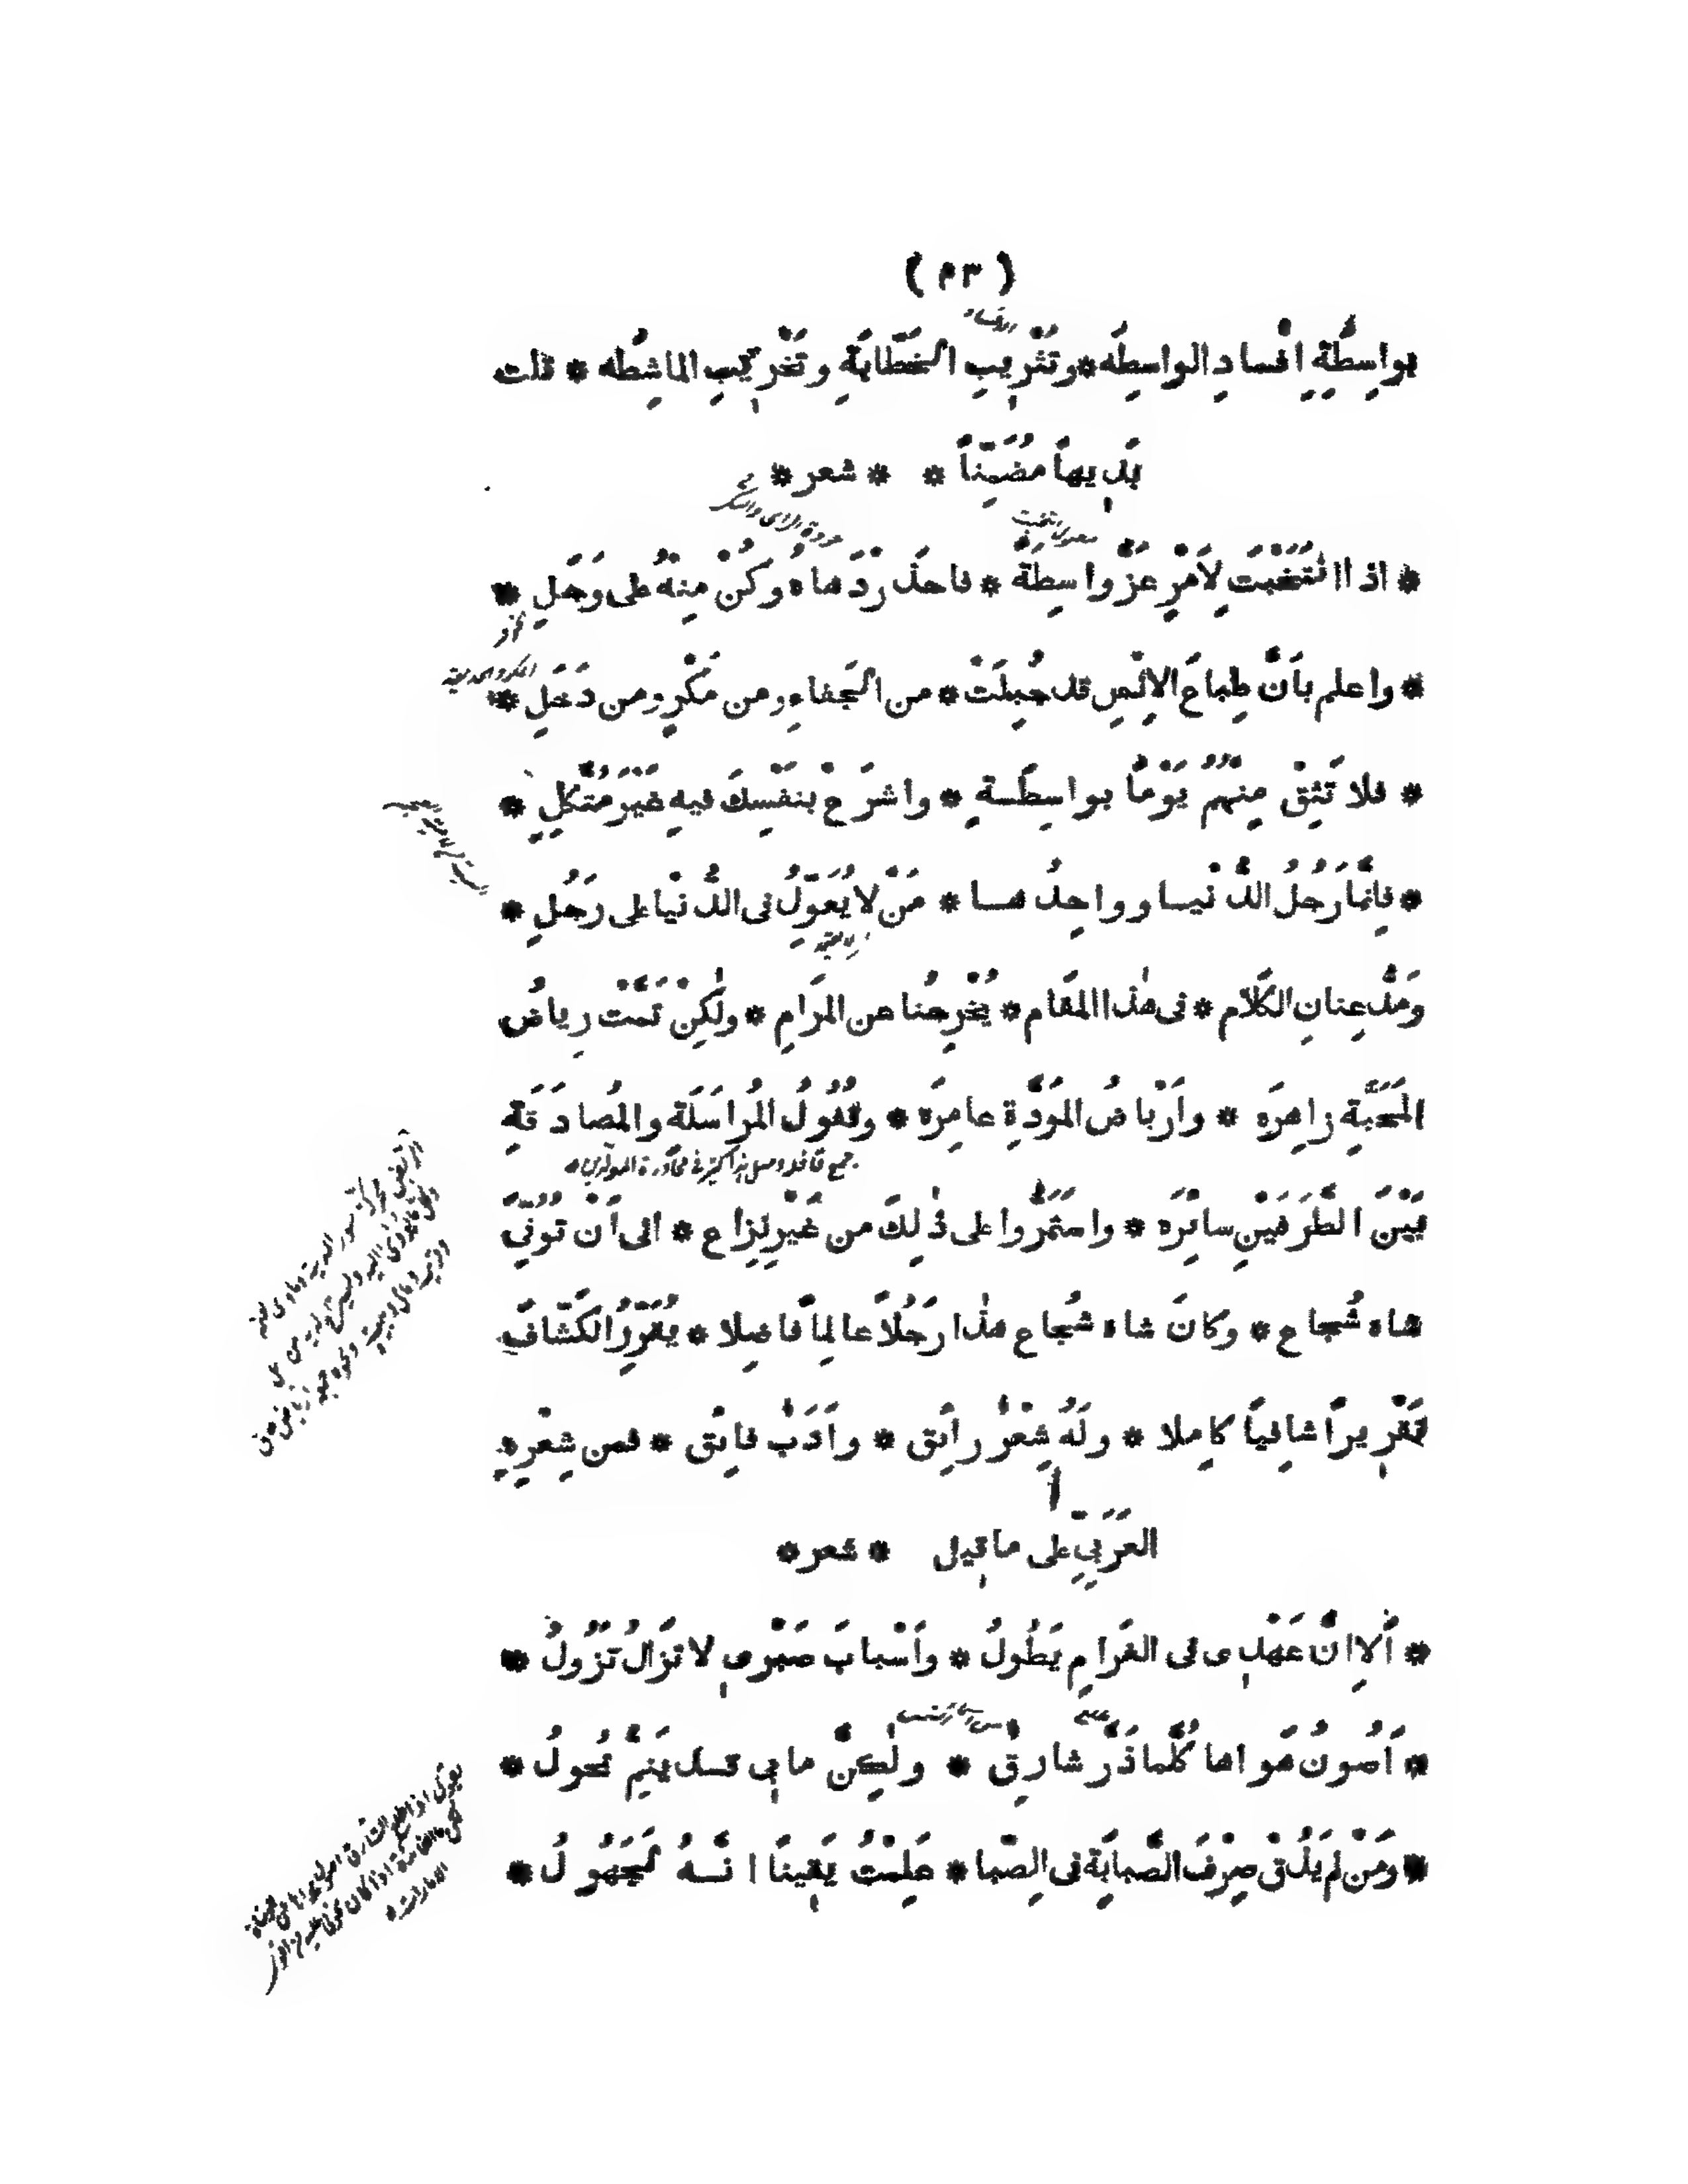 ( ٣٤ )
بواسِطَةِ اِفْسادِ الواسِطَه * وتَثْرِيبِ الخَطّابَةِ وتَخْرِيبِ الماشِطَه * قلت
بَدِيهاً مُضَمِّناً * * شعر *
* اذا انْتَخَبْتَ لِاَمْرٍ عَزَّ واسِطَةً * فاحذَرْ دَهاهُ وكُنْ مِنْهُ على وَجَلِ *
* واعلم بأنَّ طِباعَ الاِنْسِ قد جُبِلَتْ * من الجَفاءِ ومن مَكْرٍ ومن دَخَلِ *
* فلا تَثِقْ مِنْهُمُ يَوْماً بواسِطَةٍ * واشرَعْ بنَفْسِكَ فيهِ غَيْرَ مُتَّكِلِ *
* فاِنَّما رَجُلُ الدُّنْيا وواحِدُها * مَنْ لا يُعَوِّلُ فى الدُّنْيا على رَجُلِ *
ومَدُّ عِنانِ الكَلام * فى هٰذا المَقام * يُخْرِجُنا عن المَرام * ولٰكِنْ تَمَّت رِياضُ
المَحَبَّةِ زاهِرَه * واَرْباضُ المَوَدَّةِ عامِرَه * وقُفُولُ المُراسَلَةِ والمُصادَقَةِ
بَيْنَ الطَّرَفَيْنِ سائِرَه * واستَمَرُّوا على ذٰلِكَ من غَيْرِ نِزاع * الى اَنْ تُوُفِّيَ
شاه شُجاع * وكانَ شاه شُجاع هٰذا رَجُلاً عالِماً فاضِلا * يُقَرِّرُ الكَشّافَ
تَقْرِيراً شافِياً كامِلا * ولَهُ شِعْرٌ رائِق * واَدَبٌ فائِق * فمن شِعْرِهِ
العَرَبِيِّ على ما قِيل * شعر *
* اَلا اِنَّ عَهْدِى فى الغَرامِ يَطُولُ * واَسْبابَ صَبْرِى لا تَزالُ تَزُولُ *
* اَصُونُ هَواها كُلَّما ذَرَّ شارِقٌ * ولٰكِنَّ ما بِى قد يَنِمُّ نُحولُ *
* ومَنْ لم يَذُقْ صِرْفَ الصَّبابَةِ فى الصِّبا * عَلِمْتُ يَقِيناً انَّهُ لَجَهُولُ *